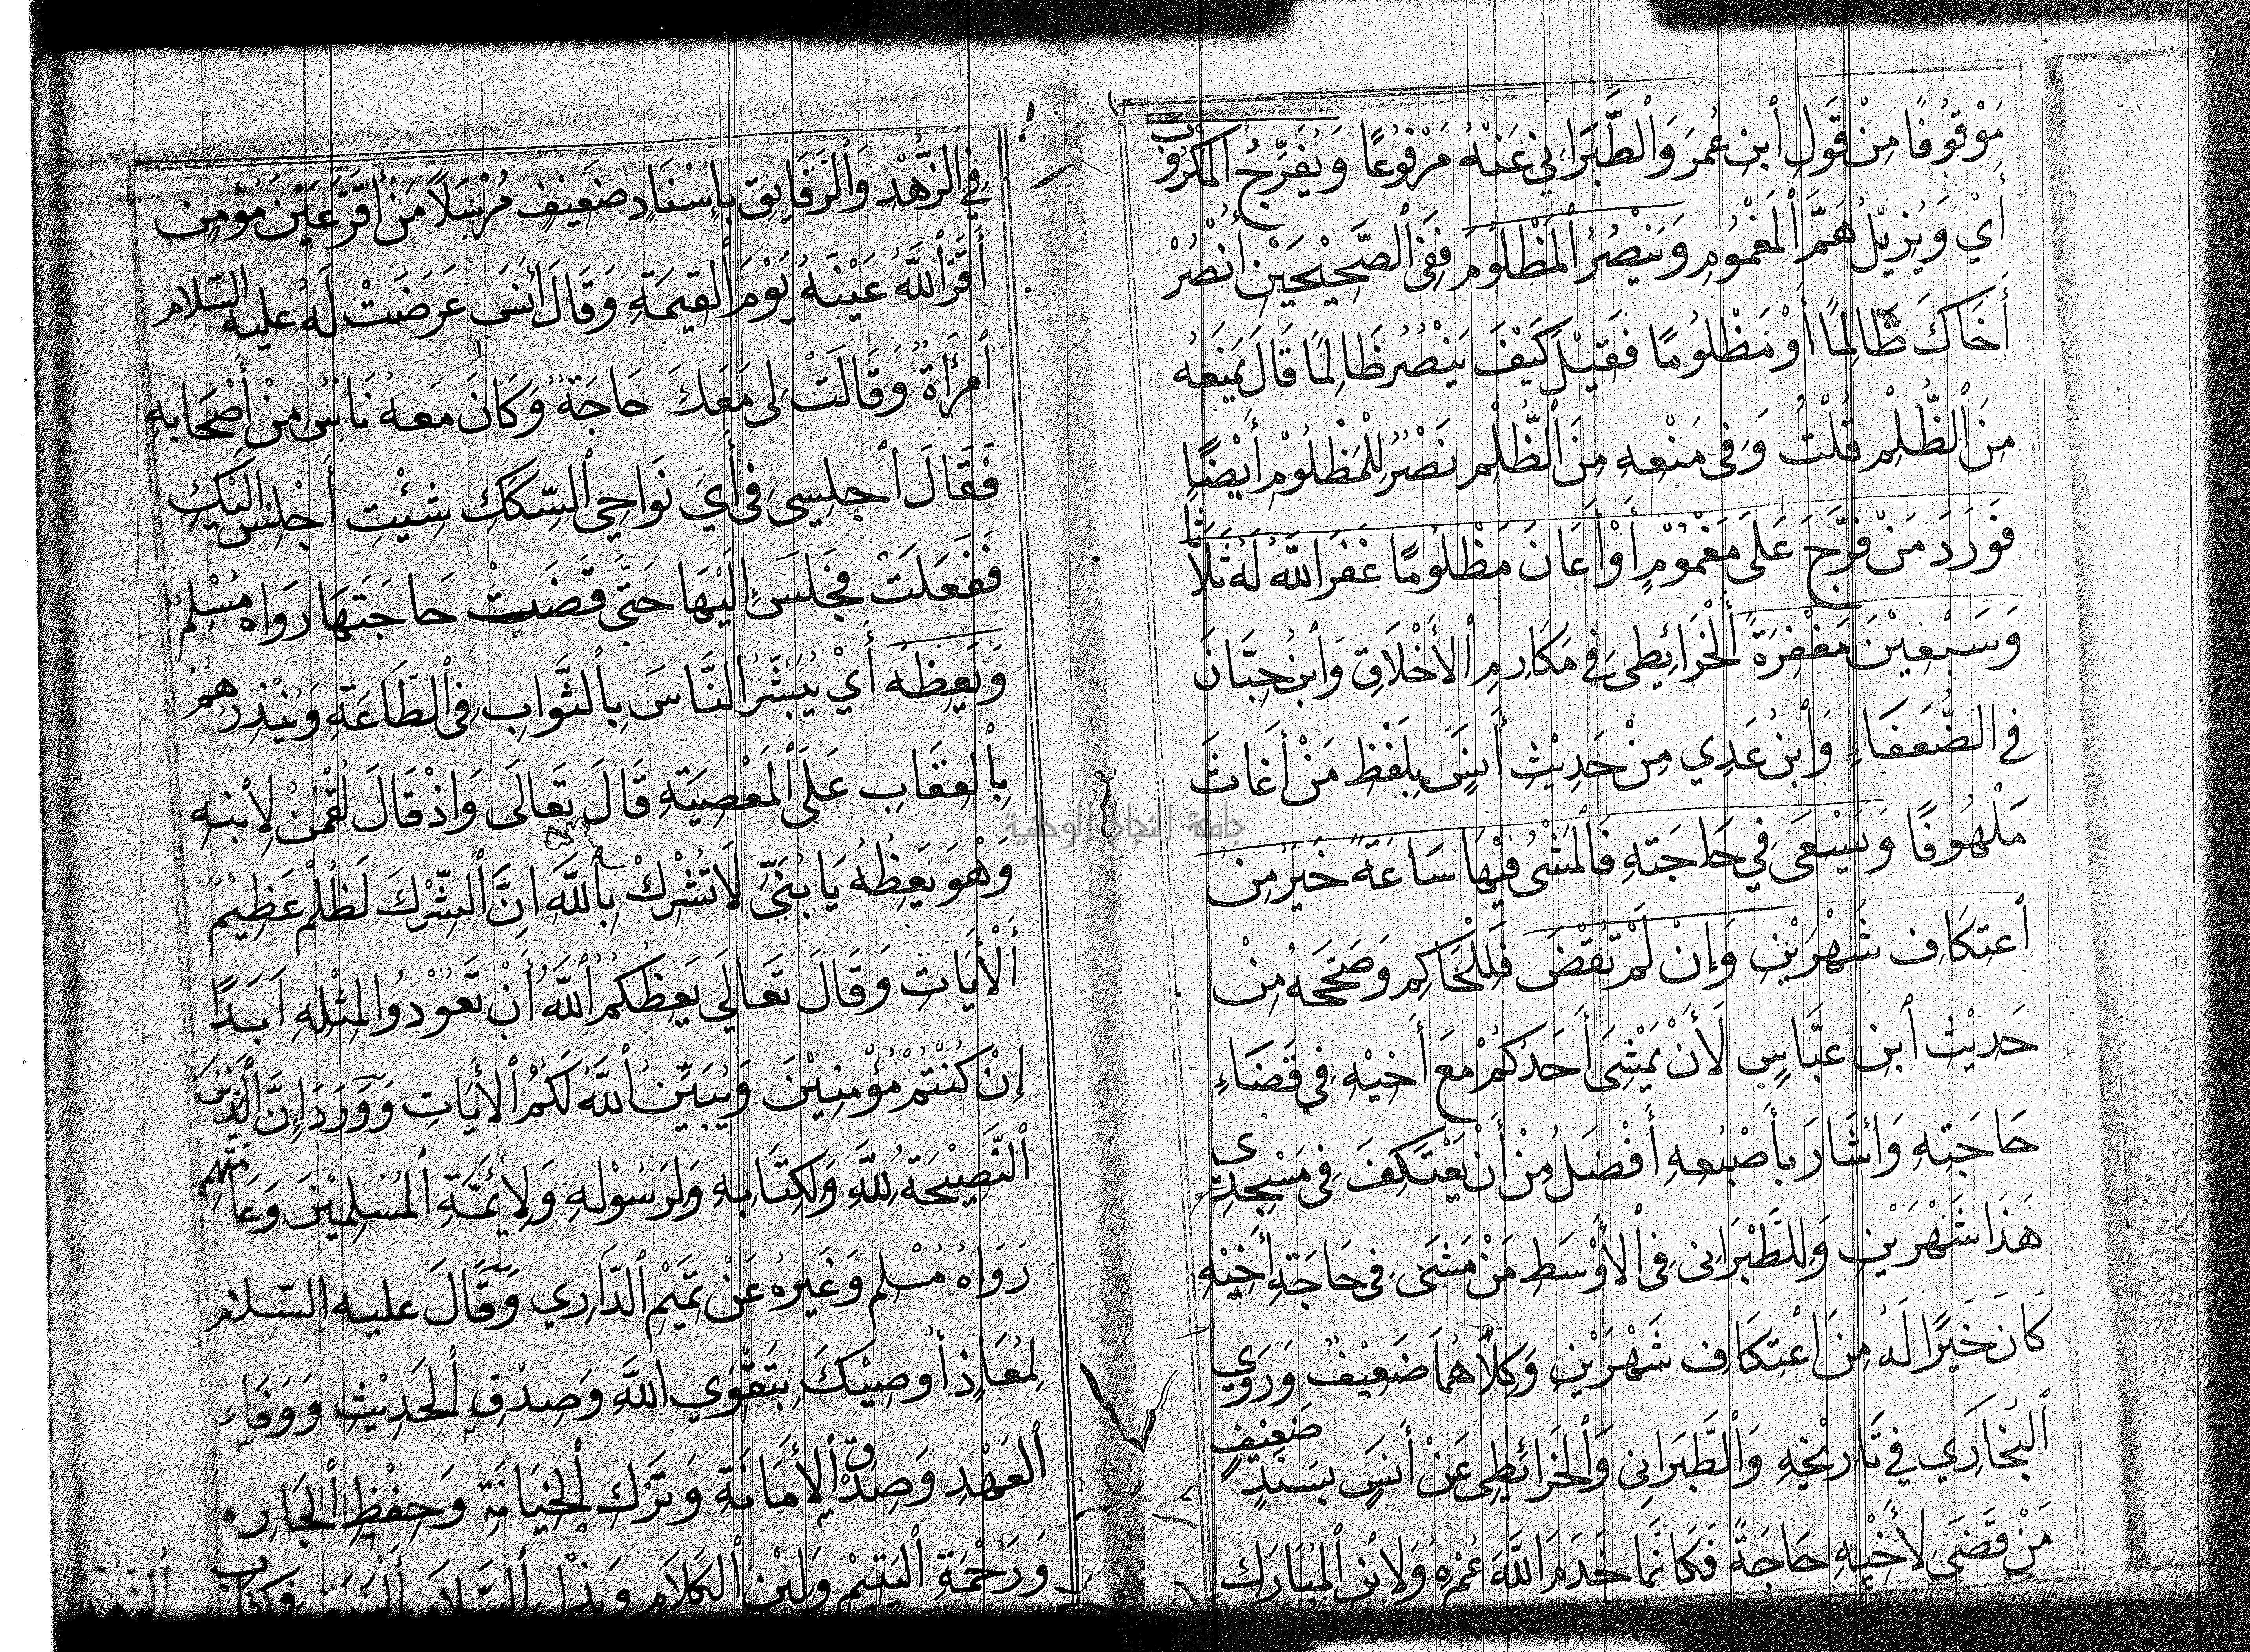 مَوْقُوفًا مِنْ قَوْلِ ٱبْنِ عُمَرَ وَٱلطَّبَرَانِي عَنْهُ مَرْفُوعًا وَيُفَرِّجُ المَكْرُوْبَ
أَيْ وَيُزِيْلُ هَمَّ ٱلْمَغْمُوْمِ وَيَنْصُرُ ٱلْمَظْلُوْمَ فَفِي ٱلصَّحِيْحَيْنِ أُنْصُرْ
أَخَاكَ ظَالِمًا أَوْ مَظْلُومًا فَقِيْلَ كَيْفَ يَنْصُرُ ظَالِمًا قَالَ يَمْنَعُهُ
مِنَ ٱلظُّلْمِ قُلْتُ وَفِى مَنْعِهِ مِنَ ٱلظُّلْمِ نَصْرٌ لِلْمَظْلُوْمِ أَيْضًا
فَوَرَدَ مَنْ فَرَّجَ عَلَى مَغْمُوْمٍ أَوْ أَعَانَ مَظْلُومًا غَفَرَ اللَّهُ لَهُ ثَلَاثًا
وَسَبْعِيْنَ مَغْفِرَةً ٱلْخَرَائِطِى فِي مَكَارِمِ ٱلْأَخْلَاقِ وَٱبْنُ حِبَّانَ
فِي الضُّعَفَاءِ وَٱبْنُ عَدِي مِنْ حَدِيْثِ أَنَسٍ بِلَفْظِ مَنْ أَغَاثَ
مَلْهُوفًا وَيَسْعَى فِي حَاجَتِهِ فَٱلْمَشْىُ فِيْهَا سَاعَةً خَيْرٌ مِنْ
ٱعْتِكَافِ شَهْرَيْنِ وَإِنْ لَمْ تُقْضَ فَلِلْحَاكِمِ وَصَحَّحَهُ مِنْ
حَدِيْثِ ٱبْنِ عَبَّاسٍ لَأَنْ يَمْشِيَ أَحَدُكُمْ مَعَ أَخِيْهِ فِي قَضَاءِ
حَاجَتِهِ وَأَشَارَ بِأَصْبُعِهِ أَفْضَلُ مِنْ أَنْ يَعْتَكِفَ فِى مَسْجِدِى
هَذَا شَهْرَيْنِ وَلِلطَّبْرَانِى فِى ٱلْأَوْسَطِ مَنْ مَشَى فِى حَاجَةِ أَخِيْهِ
كَانَ خَيْرًا لَهُ مِنَ ٱعْتِكَافِ شَهْرَيْنِ وَكِلَاهُمَا ضَعِيْفٌ وَرَوَى
ٱلْبُخَارِي فِي تَارِيْخِهِ وَٱلطَّبَرَانِى وَٱلْخَرَائِطِى عَنْ أَنَسٍ بِسَنَدٍ ضَعِيْفٍ
مَنْ قَضَى لِأَخِيْهِ حَاجَةً فَكَأَنَّمَا خَدَمَ اللَّهَ عُمْرَهُ وَلِابْنِ ٱلْمُبَارَكِ
فِي الزُّهْدِ وَٱلرَّقَايِقِ بِإِسْنَادٍ ضَعِيْفٍ مُرْسَلًا مَنْ أَقَرَّ عَيْنَ مُؤْمِنٍ
أَقَرَّ ٱللَّهُ عَيْنَهُ يَوْمَ ٱلْقِيمَةِ وَقَالَ أَنَسٌ عَرَضَتْ لَهُ عليه السّلام
ٱمْرَأَةٌ وَقَالَتْ لِى مَعَكَ حَاجَةٌ وَكَانَ مَعَهُ نَاسٌ مِنْ أَصْحَابِهِ
فَقَالَ ٱجْلِسِي فِى أَيِّ نَوَاحِي ٱلسِّكَكِ شِئْتِ أَجْلِسُ إِلَيْكِ
فَفَعَلَتْ فَجَلَسَ إِلَيْهَا حَتَّى قَضَتْ حَاجَتَهَا رَوَاهُ مُسْلِمٌ
وَيَعِظُهُ أَيْ يُبَشِّرُ النَّاسَ بِٱلثَّوَابِ فِي ٱلطَّاعَةِ وَيُنْذِرُهُمْ
بِٱلْعِقَابِ عَلَى ٱلْمَعْصِيَةِ قَالَ تَعَالَى وَاِذْ قَالَ لُقْمٰنُ لِابْنِهِ
وَهْوَ يَعِظُهُ يَا بُنَيَّ لَا تُشْرِكْ بِٱللَّهِ اِنَّ ٱلشِّرْكَ لَظُلْمٌ عَظِيْمٌ
ٱلْأَيَاتِ وَقَالَ تَعَالَي يَعِظُكُمُ ٱللَّهُ أَنْ تَعُوْدُوا لِمِثْلِهِ اَبَدًا
إِنْ كُنْتُمْ مُؤْمِنِيْنَ وَيُبَيِّنُ ٱللَّهُ لَكُمُ ٱلْأَيَاتِ وَوَرَدَ إِنَّ ٱلدِّيْنَ
ٱلنَّصِيْحَةُ لِلَّهِ وَلِكِتَابِهِ وَلِرَسُوْلِهِ وَلِأَئِمَّةِ ٱلْمُسْلِمِيْنَ وَعَامَّتِهِمْ
رَوَاهُ مُسْلِم وَغَيْرُهُ عَنْ تَمِيْمِ ٱلدَّارِي وَقَالَ عليه السّلام
لِمُعَاذٍ أُوصِيْكَ بِتَقْوَي اللَّهِ وَصِدْقِ ٱلْحَدِيْثِ وَوَفَاءِ
ٱلْعَهْدِ وَصِدْقِ ٱلْأَمَانَةِ وَتَرْكِ ٱلْخِيَانَةِ وَحِفْظِ ٱلْجَارِ
وَرَحْمَةِ ٱلْيَتِيْمِ وَلِيْنِ ٱلْكَلَامِ وَبَذْلِ ٱلسَّلَامِ
جامعة النجاح الوطنية